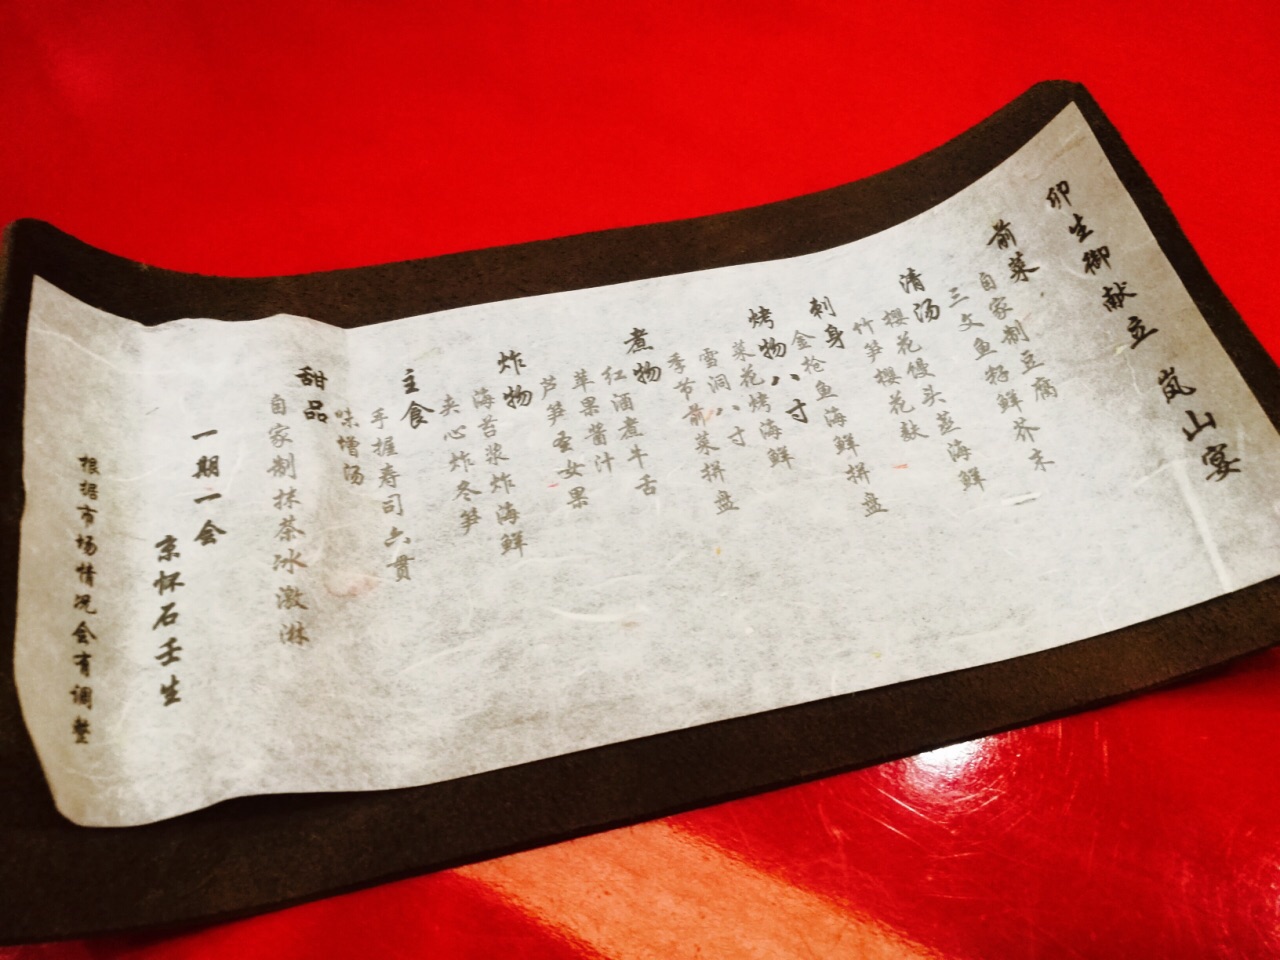 卯生御献立 岚山宴
前菜
自家制豆腐
三文鱼籽鲜芥末
清汤
樱花馒头蒸海鲜
竹笋樱花麸
刺身
金枪鱼海鲜拼盘
烤物八寸
菜花烤海鲜
雪洞八寸
季节前菜拼盘
煮物
红酒煮牛舌
苹果酱汁
芦笋圣女果
炸物
海苔浆炸海鲜
夹心炸冬笋
主食
手握寿司六贯
味增汤
甜品
自家制抹茶冰激淋
一期一会
京怀石壬生
根据市场情况会有调整